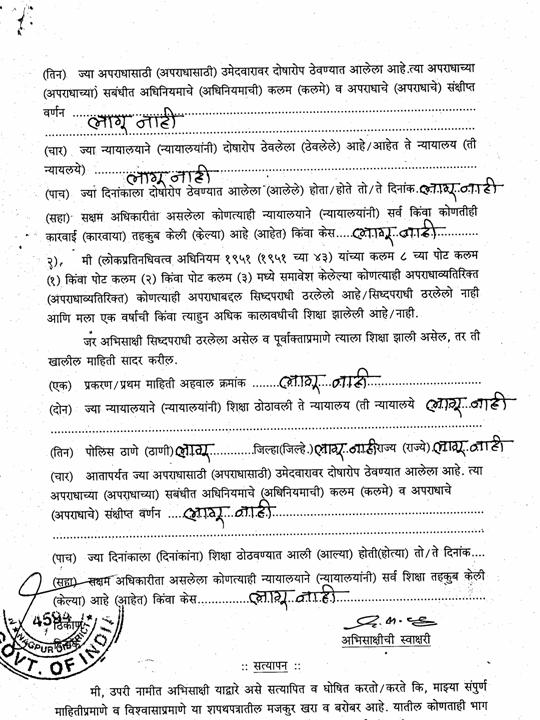 (तिन) ज्या अपराधासाठी (अपराधासाठी) उमेदवारावर दोषारोप ठेवण्यात आलेला आहे.त्या अपराधाच्या
(अपराधाच्या) सबंधीत अधिनियमाचे (अधिनियमाची) कलम (कलमे) व अपराधाचे (अपराधाचे) संक्षीप्त
वर्णन ..........................
लागू नाही
(चार) ज्या न्यायालयाने (न्यायालयांनी) दोषारोप ठेवलेला (ठेवलेले) आहे/आहेत ते न्यायालय (ती
न्यायलये) लागू नाही
(पाच) ज्या दिनांकाला दोषारोप ठेवण्यात आलेला (आलेले) होता/होते तो/ते दिनांक. लागू नाही
(सहा) सक्षम अधिकारीता असलेला कोणत्याही न्यायालयाने (न्यायालयांनी) सर्व किंवा कोणतीही
कारवाई (कारवाया) तहकुब केली (केल्या) आहे (आहेत) किंवा केस ....लागू नाही
२), मी (लोकप्रतिनिधित्व अधिनियम १९५१ (१९५१ च्या ४३) यांच्या कलम ८ च्या पोट कलम
(१) किंवा पोट कलम (२) किंवा पोट कलम (३) मध्ये समावेश केलेल्या कोणत्याही अपराधाव्यतिरिक्त
(अपराधाव्यतिरिक्त) कोणत्याही अपराधाबद्दल सिध्दपराधी ठरलेलो आहे/सिध्दपराधी ठरलेलो नाही
आणि मला एक वर्षाची किंवा त्याहुन अधिक कालावधीची शिक्षा झालेली आहे/नाही.
जर अभिसाक्षी सिध्दपराधी ठरलेला असेल व पूर्वोक्ताप्रमाणे त्याला शिक्षा झाली असेल, तर ती
खालील माहिती सादर करील.
(एक) प्रकरण/प्रथम माहिती अहवाल क्रमांक ........लागू नाही
(दोन) ज्या न्यायालयाने (न्यायालयांनी) शिक्षा ठोठावली ते न्यायालय (ती न्यायालये लागू नाही
(तिन) पोलिस ठाणे (ठाणी) लागू ............जिल्हा(जिल्हे.) लागू नाही राज्य (राज्ये) लागू नाही
(चार) आतापर्यत ज्या अपराधासाठी (अपराधासाठी) उमेदवारावर दोषारोप ठेवण्यात आलेला आहे. त्या
अपराधाच्या (अपराधाच्या) सबंधीत अधिनियमाचे (अधिनियमाची) कलम (कलमे) व अपराधाचे
(अपराधाचे) संक्षीप्त वर्णन ....लागू नाही
(पाच) ज्या दिनांकाला (दिनांकांना) शिक्षा ठोठवण्यात आली (आल्या) होती(होत्या) तो/ते दिनांक....
(सहा) सक्षम अधिकारीता असलेला कोणत्याही न्यायालयाने (न्यायालयांनी) सर्व शिक्षा तहकुब केली
(केल्या) आहे (आहेत) किंवा केस.........लागू नाही
4594
ठिकाण
NAGPUR DISTRICT
GOVT. OF INDIA
अभिसाक्षीची स्वाक्षरी
:: सत्यापन ::
मी, उपरी नामीत अभिसाक्षी याद्वारे असे सत्यापित व घोषित करतो/करते कि, माझ्या संपुर्ण
माहितीप्रमाणे व विश्वासाप्रमाणे या शपथपत्रातील मजकुर खरा व बरोबर आहे. यातील कोणताही भाग